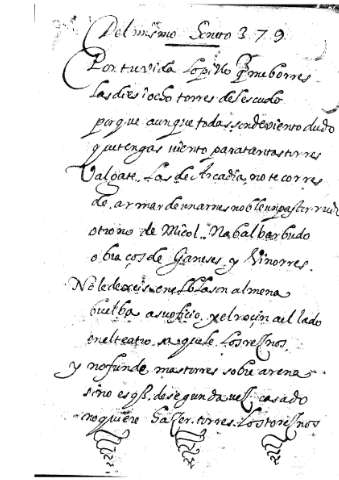 Del mismo Genero 379
Por tu vida Lopillo q̃ me borres
las diez i ocho torres del escudo
porque aunque todas son de viento dudo
q̃ tengas viento para tantas torres
Valgate los de Arcadia, no te corres
de armar de un arnes noble un pastor rudo
o tronco de Micol Nabal barbudo
o braços de Ganeses y Vinorres.
No le dexeis en el blason almena
buelba a su oficio, y el roçin al lado
en el teatro saquele los reznos
y no funde mas torres sobre arena
sino es q̃ de segunda vez casado
nos quiere hazer torres los torreznos